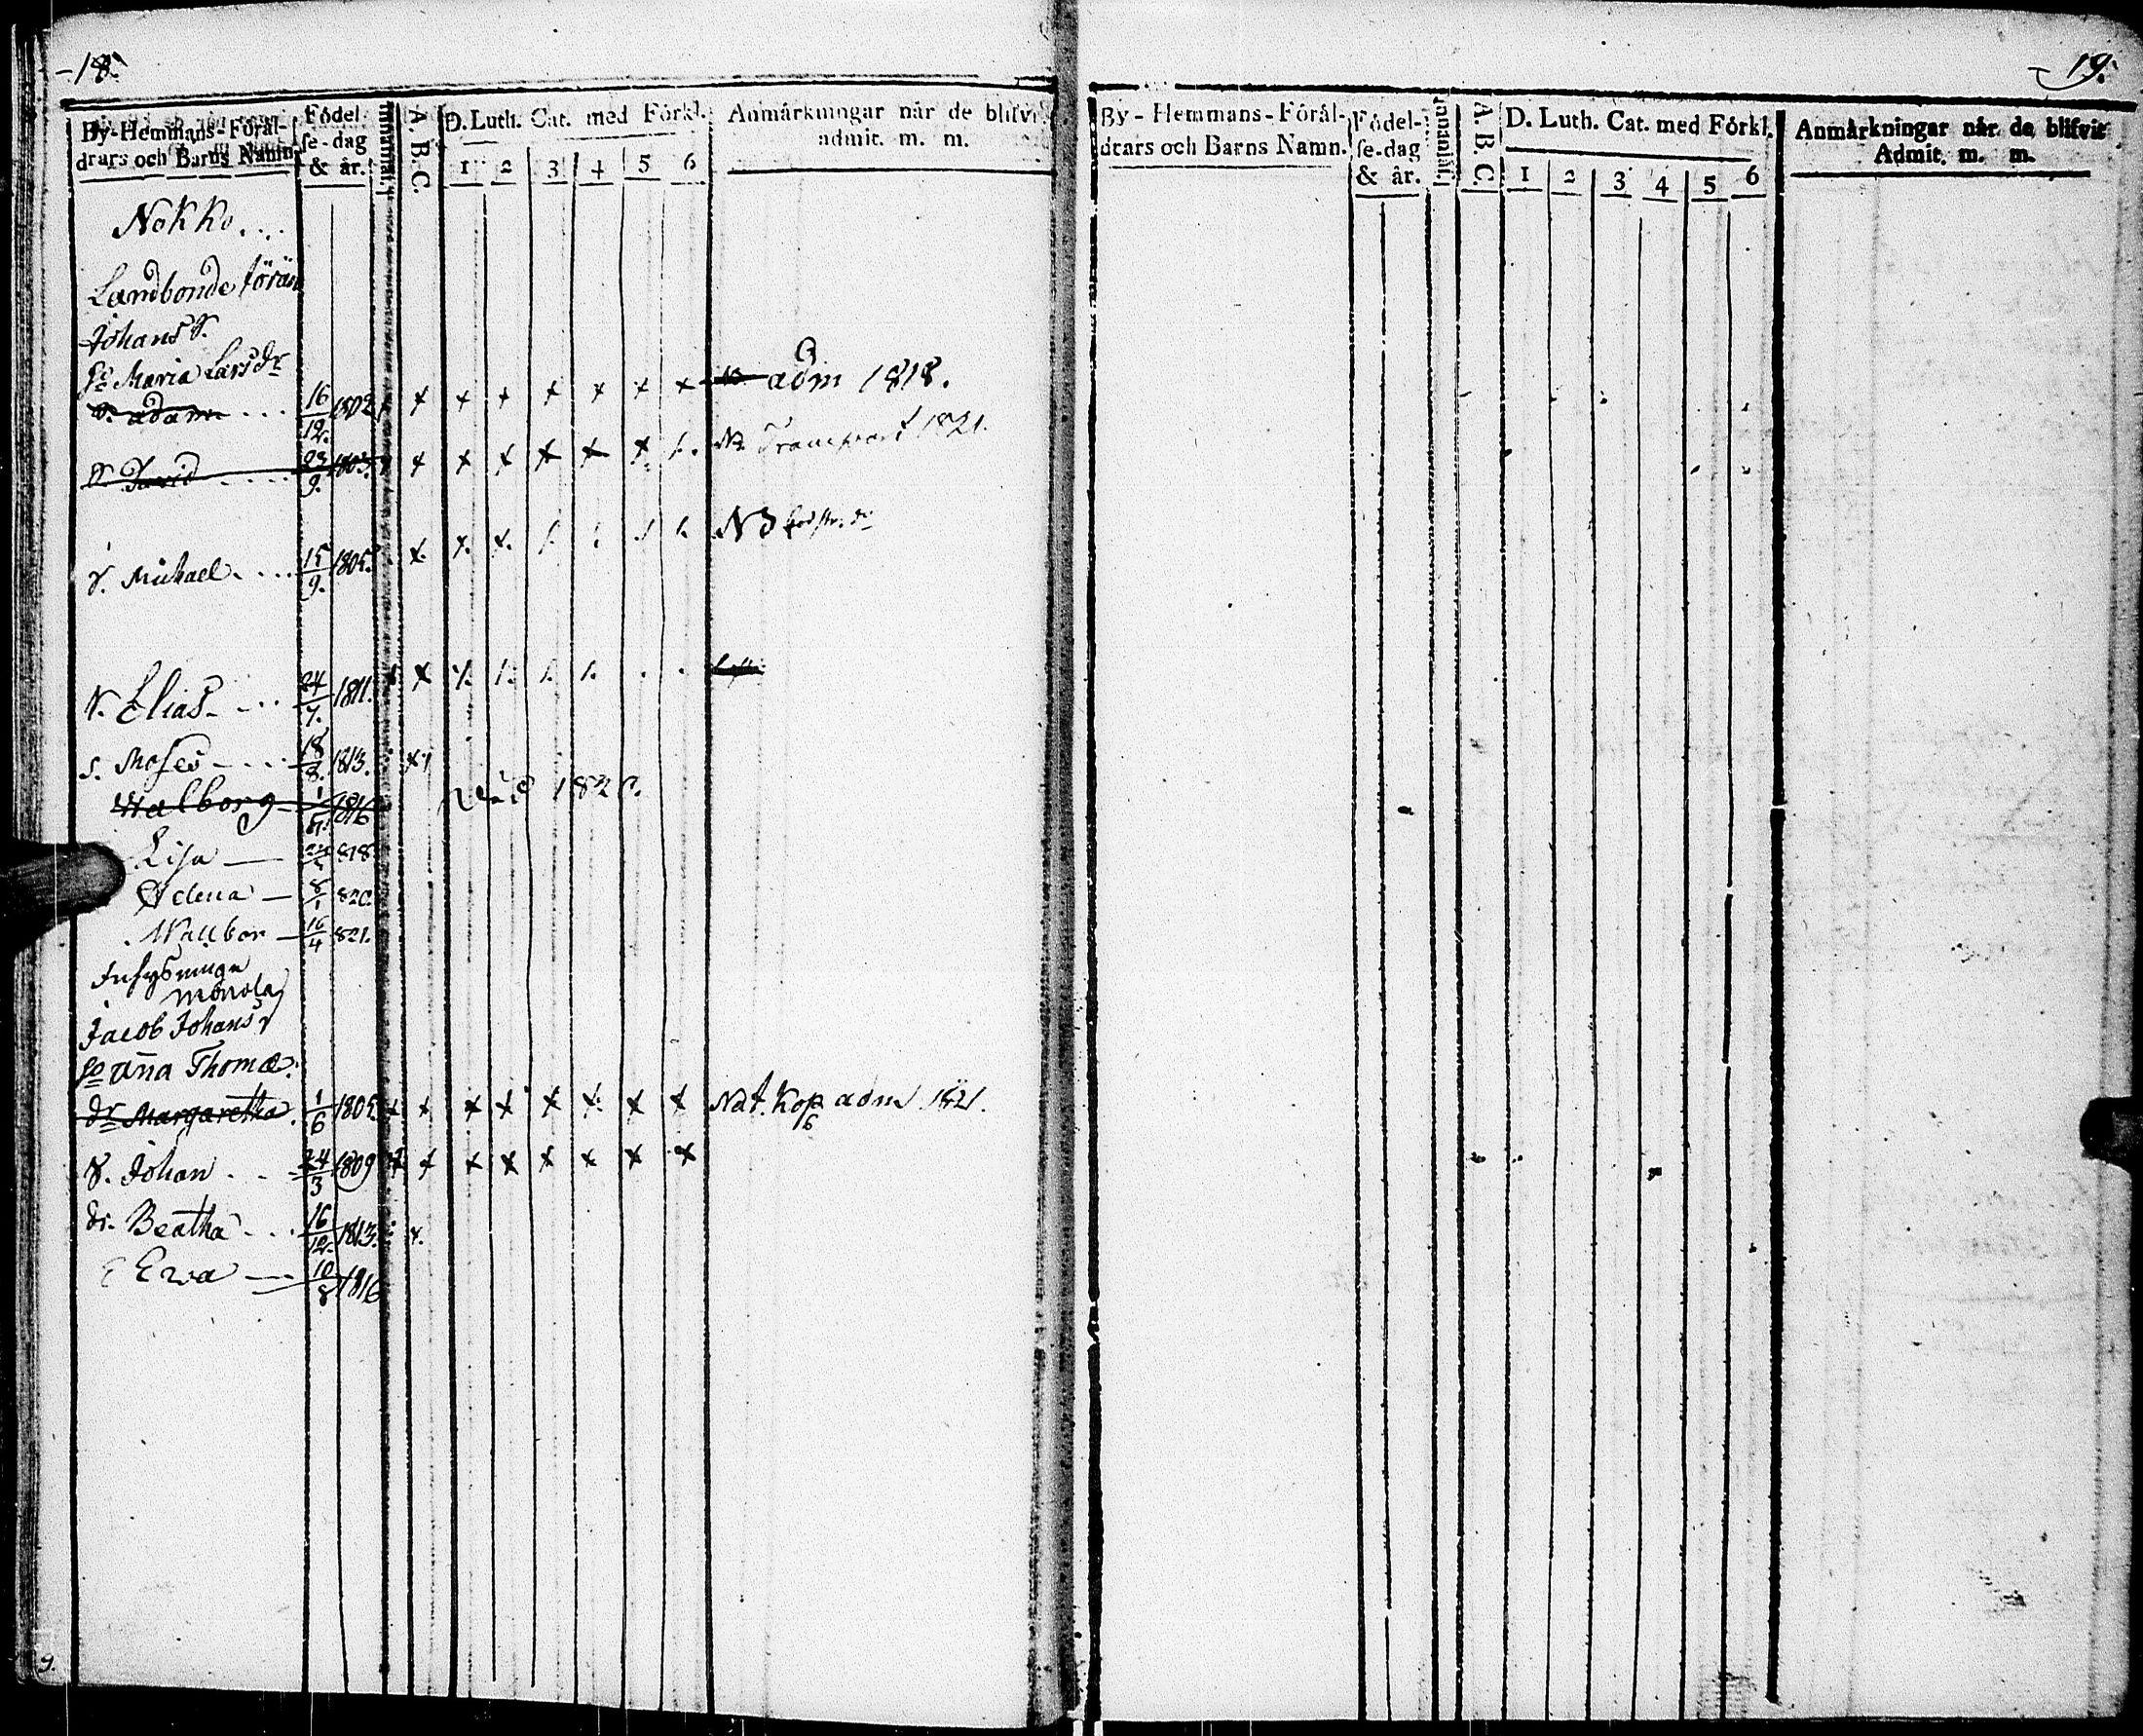 18.
By-Hemmans-Föräl-
drars och Barns Namn.
Födel-
se-dag
& år.
Innanläs.
A. B. C.
D. Luth. Cat. med Förkl.
1 2 3 4 5 6
Anmärkningar när de blifvit
admit. m. m.
Nokko...
Landbonde Göran
Johans S.
Maria Larsdr
S. Adam ... 16/12. 1802 x x x x x x x adm 1818.
S. David .... 23/9. 1803. x x x x x x x. 1821.
S. Michael.... 15/9. 1805. x. x. x. NB
S. Elias.... 24/7. 1811. x
s. Moses.... 18/8. 1813.
Walborg 1/5. 1816 1820.
Lisa — 818
Helena — 8/1 820
Wallbor — 16/4 821.
Jacob Johans S
Anna Thomæ.
dr Margaretha. 1/6 1805 x x x x x x x x Nat. Kop adm 1821.
S. Johan... 24/3 1809 x x x x x x x x
dr. Beatha... 16/12. 1813. x.
Ewa — 10/8 1816
9.
19.
By-Hemmans-Föräl-
drars och Barns Namn.
Födel-
se-dag
& år.
Innanläs.
A. B. C.
D. Luth. Cat. med Förkl.
1 2 3 4 5 6
Anmärkningar när de blifvit
Admit. m. m.